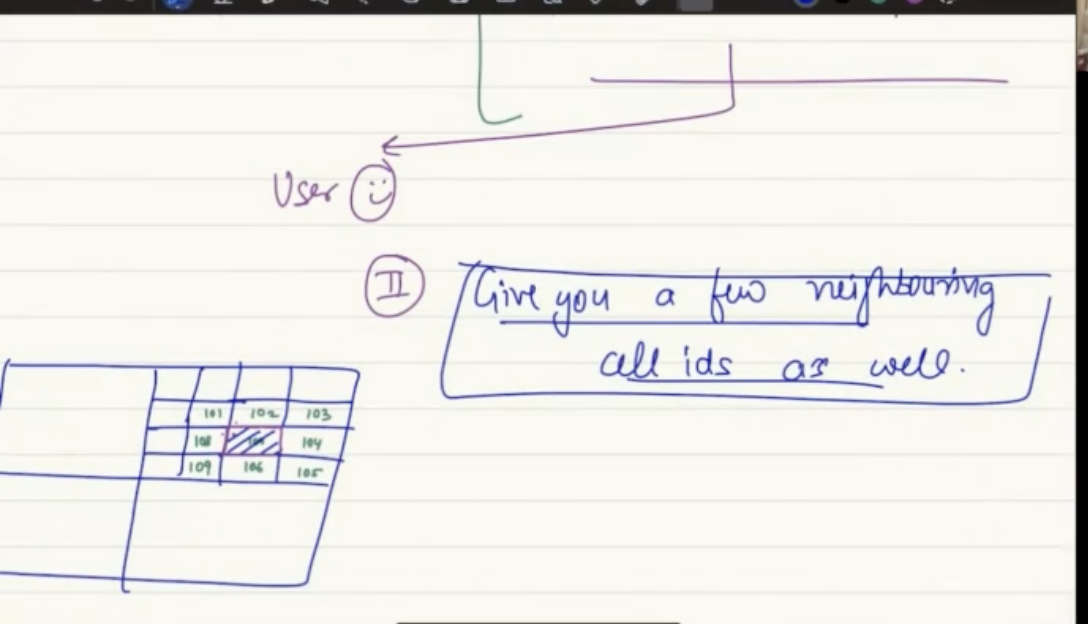 User
II
Give you a few neighbouring
cell ids as well.
101 102 103
108 104
109 106 105